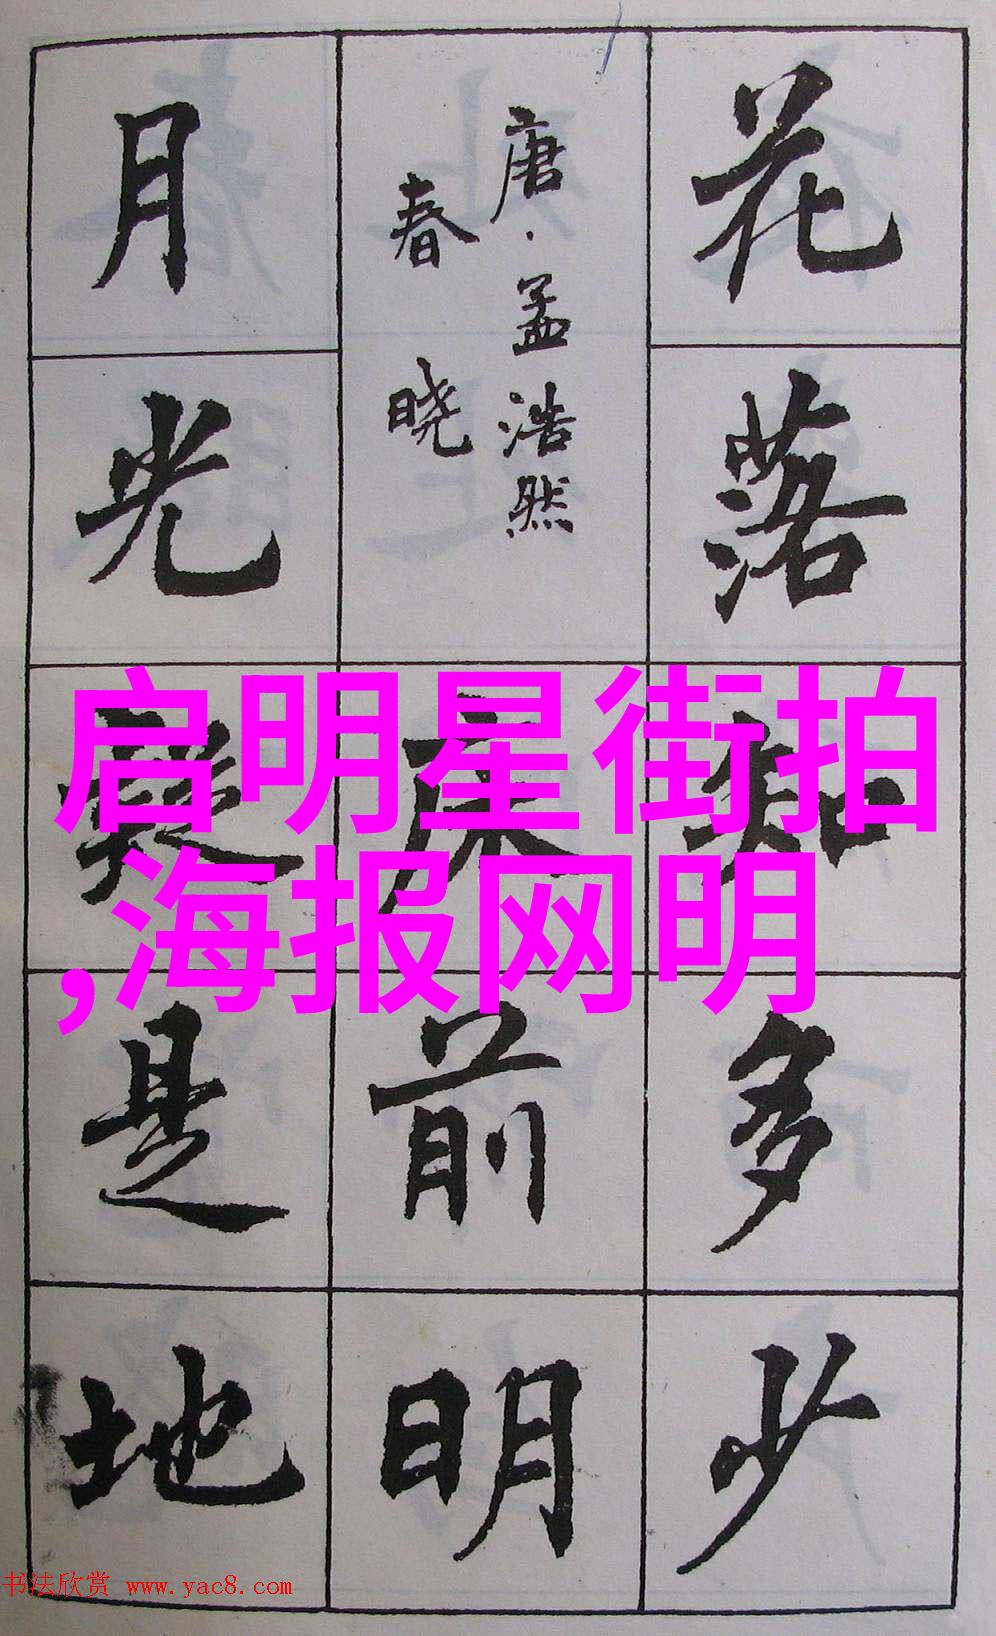 花落知多少
唐·孟浩然
春晓
床前明
月光疑是地
启明星街拍
,海报网明
书法欣赏 www.yac8.com